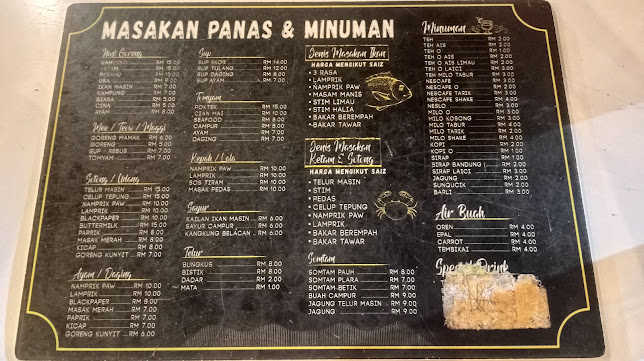 MASAKAN PANAS & MINUMAN
Nasi Goreng
RM 15.00
RM 15.00
RM 15.00
IKAN MASIN RM 7.00
KAMPUNG RM 7.00
BIASA RM 5.00
CINA RM 5.00
AYAM RM 8.00
Mee / Teow / Maggi
GORENG MAMAK RM 6.00
GORENG RM 5.00
SUP / REBUS RM 7.00
TOMYAM RM 7.00
Sotong / Udang
TELUR MASIN RM 15.00
CELUP TEPUNG RM 15.00
NAMPRIK PAW RM 10.00
LAMPRIK RM 10.00
BLACKPAPER RM 10.00
BUTTERMILK RM 15.00
PAPRIK RM 8.00
MASAK MERAH RM 8.00
KICAP RM 8.00
GORENG KUNYIT RM 8.00
Ayam / Daging
NAMPRIK PAW RM 10.00
LAMPRIK RM 10.00
BLACKPAPER RM 8.00
MASAK MERAH RM 7.00
PAPRIK RM 7.00
KICAP RM 7.00
GORENG KUNYIT RM 7.00
Sup
SUP EKOR RM 14.00
SUP TULANG RM 12.00
SUP DAGING RM 8.00
SUP AYAM RM 7.00
Tomyam
POKTEK RM 15.00
CIAN MAI RM 10.00
SEAFOOD RM 8.00
CAMPUR RM 8.00
AYAM RM 7.00
DAGING RM 7.00
Kepah / Lala
NAMPRIK PAW RM 10.00
LAMPRIK RM 10.00
SOS TIRAM RM 10.00
MASAK PEDAS RM 10.00
Sayur
KAILAN IKAN MASIN RM 6.00
SAYUR CAMPUR RM 6.00
KANGKUNG BELACAN RM 6.00
Telur
BUNGKUS RM 8.00
BISTIK RM 8.00
DADAR RM 2.00
MATA RM 1.00
Jenis Masakan Ikan
HARGA MENGIKUT SAIZ
• 3 RASA
• LAMPRIK
• NAMPRIK PAW
• MASAM MANIS
• STIM LIMAU
• STIM HALIA
• BAKAR BEREMPAH
• BAKAR TAWAR
Jenis Masakan
Ketam & Sotong
HARGA MENGIKUT SAIZ
• TELUR MASIN
• STIM
• PEDAS
• CELUP TEPUNG
• NAMPRIK PAW
• LAMPRIK
• BAKAR BEREMPAH
• BAKAR TAWAR
Somtam
SOMTAM PAUH RM 8.00
SOMTAM PLARA RM 7.00
SOMTAM BETIK RM 7.00
BUAH CAMPUR RM 9.00
JAGUNG TELUR MASIN RM 9.00
JAGUNG RM 9.00
Minuman
TEH RM 2.00
TEH AIS RM 2.00
TEH O RM 1.00
TEH O AIS RM 1.00
TEH O AIS LIMAU RM 2.00
TEH O LAICI RM 3.00
TEH MILO TABUR RM 3.00
NESCAFE RM 2.00
NESCAFE O RM 2.00
NESCAFE TARIK RM 3.00
NESCAFE SHAKE RM 4.00
NESLO RM 3.00
MILO RM 3.00
MILO O RM 2.00
MILO KOSONG RM 3.00
MILO TABUR RM 4.00
MILO TARIK RM 3.00
MILO SHAKE RM 4.00
KOPI RM 2.00
KOPI O RM 1.00
SIRAP RM 1.00
SIRAP BANDUNG RM 2.00
SIRAP LAICI RM 3.00
JAGUNG RM 2.00
SUNQUICK RM 2.00
BARLI RM 3.00
Air Buah
OREN RM 4.00
EPAL RM 4.00
CARROT RM 4.00
TEMBIKAI RM 4.00
Special Drink